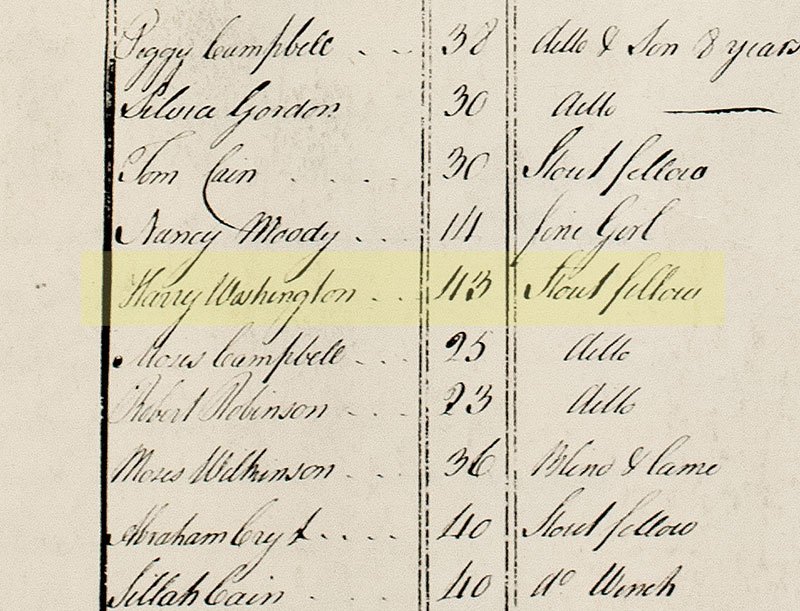 Peggy Campbell - - - 38 ditto & Son 8 years
Silvia Gordon 30 ditto
Tom Cain - - - - 30 Stout fellow
Nancy Moody - - - 14 fine Girl
Harry Washington - - - 43 Stout fellow
Moses Campbell - - - 25 ditto
Robert Robinson - - - 23 ditto
Moses Wilkinson - - - 36 Blind & lame
Abraham - - - - 40 Stout fellow
Sillah Cain - - - 40 do Wench